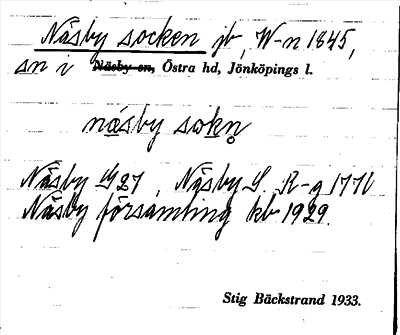 Näsby socken jb, W-n 1845,
sn i Näsby sn, Östra hd, Jönköpings l.
näsby sokn̥
Näsby G27, Näsby S. R-g 1771
Näsby församling kb 1929.
Stig Bäckstrand 1933.